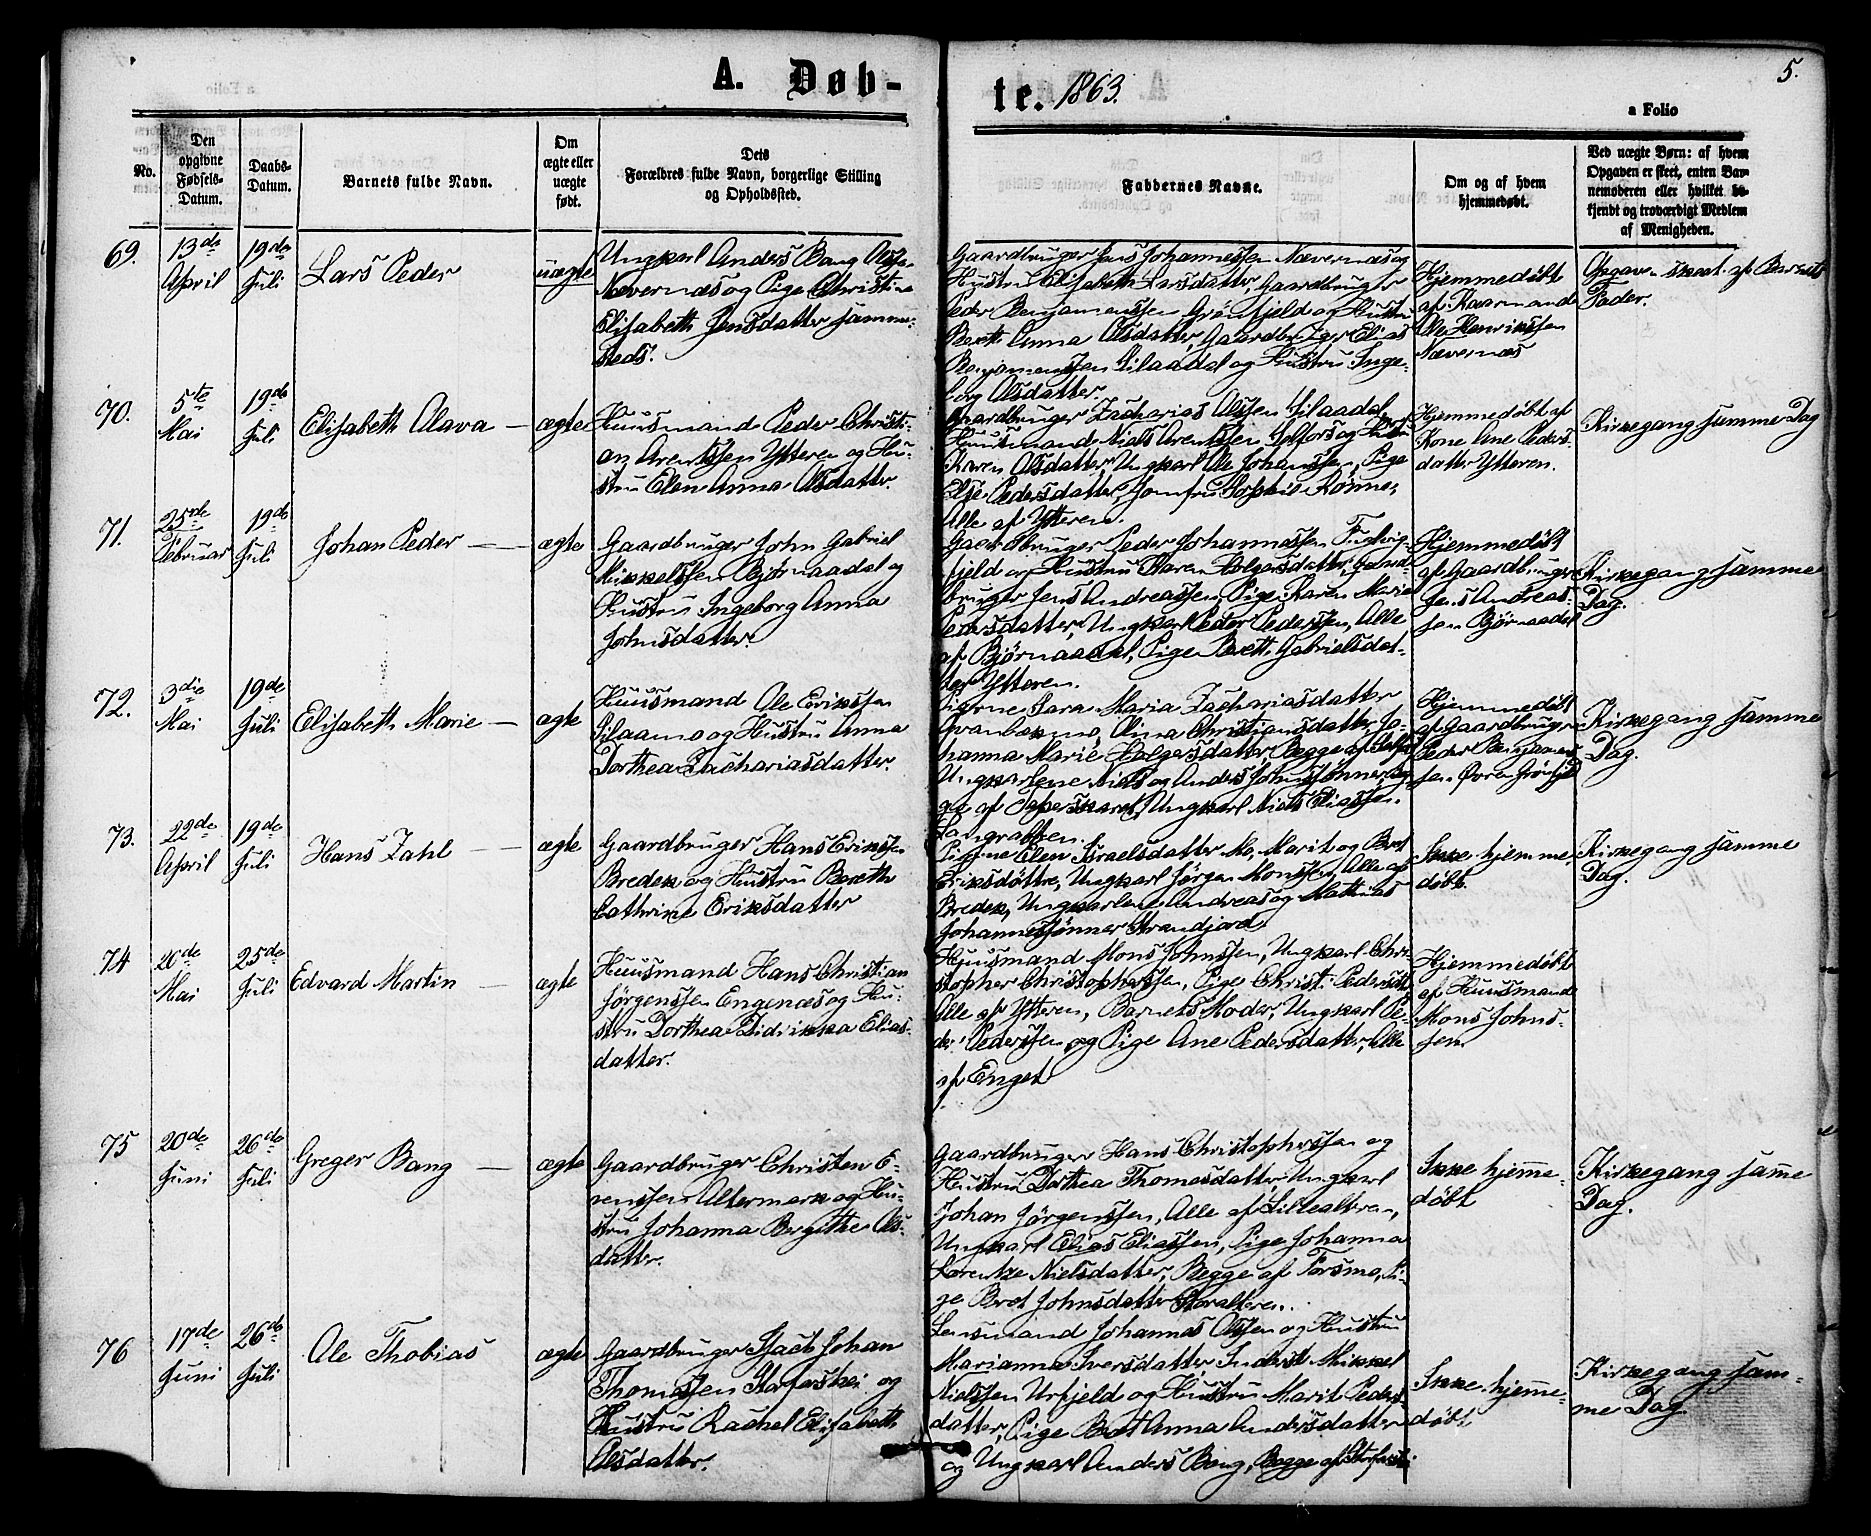 A. Døb-
te. 1863.
5.
a Folio
No.
Den
opgivne
Fødsels-
Datum.
Daabs-
Datum.
Barnets fulde Navn.
Om
ægte eller
uægte
født.
Dets
Forældres fulde Navn, borgerlige Stilling
og Opholdssted.
Faddernes Navne.
Om og af hvem
hjemmedøbt.
Ved uægte Børn: af hvem
Opgaven er skeet, enten Bar-
nemoderen eller hvilket be-
kjendt og troværdigt Medlem
af Menigheden.
69.
13de
April
19de
Juli
Lars Peder
uægte
Ungkarl Anders Bang Olsen
Nævernæs og Pige Christine
Elisabeth Jensdatter samme-
steds.
Gaardbruger Jens Johannessen Nævernæs og
Hustru Elisabeth Larsdatter, Gaardbruger
Peder Benjamenssen Grønfjeld og Hustru
Berett Anna Olsdatter, Gaardbruger Elias
Benjamenssen Silaadal og Hustru Inge-
borg Olsdatter.
Hjemmedøbt
af Kaarmand
Ole Henrikssen
Nævernæs
Opgaven skeet af Barnets
Fader.
70.
5te
Mai
19de
Juli
Elisabeth Olava
ægte
Huusmand Peder Christi-
an Arentssen Ytteren og Hu-
stru Elen Anna Olsdatter.
Gaardbruger Zacharias Olssen Silaadal,
Huusmand Niels Arentssen Selfors og Hustru
Karen Olsdatter, Ungkarl Ole Johanssen, Pige
Else Pedersdatter, Jomfru Sophie Rønne,
Alle af Ytteren.
Hjemmedøbt af
Kone Ane Peders-
datter Ytteren.
Kirkegang samme Dag
71.
25de
Februar
19de
Juli
Johan Peder
ægte
Gaardbruger John Gabriel
Mikkelssen Bjørnaadal og
Hustru Ingeborg Anna
Johnsdatter.
Gaardbruger Peder Johannessen Fuglvig-
fjeld og Hustru Karen Holgersdatter, Gaard-
bruger Jens Andreassen, Pige Karen Marie
Pedersdatter, Ungkarl Peder Pederssen, Alle
af Bjørnaadal, Pige Berett Gabrielsdat-
ter Ytteren.
Hjemmedøbt
af Gaardbruger
Jens Andreas-
sen Bjørnaadal
Kirkegang samme
Dag.
72.
3die
Mai
19de
Juli
Elisabeth Marie
ægte
Huusmand Ole Erikssen
Silaamo og Hustru Anna
Dorthea Zachariasdatter.
Pigerne Sara Maria Zachariasdatter
Olina Christiansdatter, Jo-
hanna Marie Holgersdatter, Begge af
Ungkarlene Niels og Anders Johnssønner, Beg-
ge af Ungkarl Niels Eliassen
Langratten.
Hjemmedøbt
af Gaardbruger
Peder Benjamens-
sen Øvre Grønfjeld
Kirkegang samme
Dag.
73.
22de
April
19de
Juli
Hans Zahl
ægte
Gaardbruger Hans Erikssen
Bredek og Hustru Bereth
Cathrine Eriksdatter
Pigerne Elen Israelsdatter Mo, Marit og Bret
Eriksdøttre, Ungkarl Jørgen Monssen, Alle af
Bredek, Ungkarlene Andreas og Mathias
Johannessønner Strandjord.
Ikke hjemme-
døbt.
Kirkegang samme
Dag.
74
26de
Mai
25de
Juli
Edvard Martin
ægte
Huusmand Hans Christian
Jørgenssen Engenæs og Hu-
stru Dorthea Didrikka Elias-
datter.
Huusmand Mons Johnssen, Ungkarl Chri-
stopher Christopherssen, Pige Christi Pedersdtr
Alle af Ytteren, Barnets Moder, Ungkarl Pe-
der Pederssen og Pige Ane Pedersdatter, Alle
af Enget
Hjemmedøbt
af Huusmand
Mons Johns-
sen
75
20de
Juni
26de
Juli
Greger Bang
ægte
Gaardbruger Christen E-
renssen Altermark og Hu-
stru Johanna Bergithe Ols-
datter.
Gaardbruger Hans Christopherssen og
Hustru Dorthea Thomasdatter, Ungkarl
Johan Jørgenssen, Alle af Lillealteren,
Ungkarl Elias Eliassen, Pige Johanna
Lorentze Nielsdatter, Begge af Forsmo, Pi-
ge Bret Johnsdatter Storalteren.
Ikke hjemme-
døbt
Kirkegang samme
Dag.
76
17de
Juni
26de
Juli
Ole Thobias
ægte
Gaardbruger Isach Johan
Thomassen Storforshei og
Hustru Rachel Elisabeth
Olsdatter.
Lensmand Johannes Olssen og Hustru
Marianna Iversdatter, Inderst Mikkel
Nielssen Urfjeld og Hustru Marit Peders-
datter, Pige Bret Anna Andersdatter
og Ungkarl Anders Bang, Begge af Storforshei
Ikke hjemme-
døbt
Kirkegang sam-
me Dag